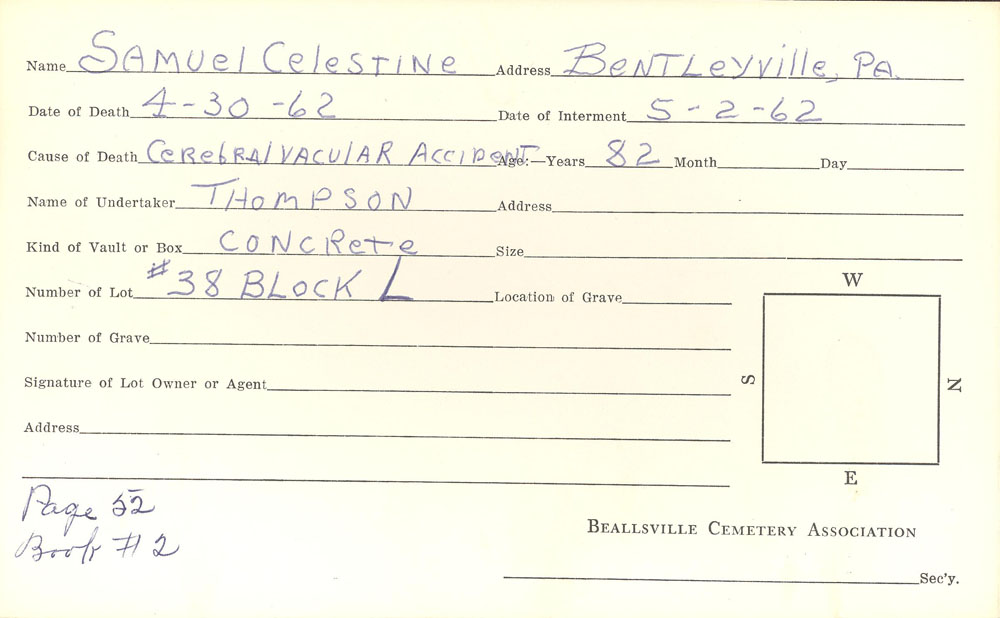 Name SAMUEL CELESTINE Address BENTLEYVILLE, PA.
Date of Death 4-30-62 Date of Interment 5-2-62
Cause of Death CEREBRALVACULAR ACCIDENT Age:—Years 82 Month Day
Name of Undertaker THOMPSON Address
Kind of Vault or Box CONCRETE Size
Number of Lot #38 BLOCK L Location of Grave
W
Number of Grave
Signature of Lot Owner or Agent
S N
Address
E
Page 52
Book #2
BEALLSVILLE CEMETERY ASSOCIATION
Sec'y.